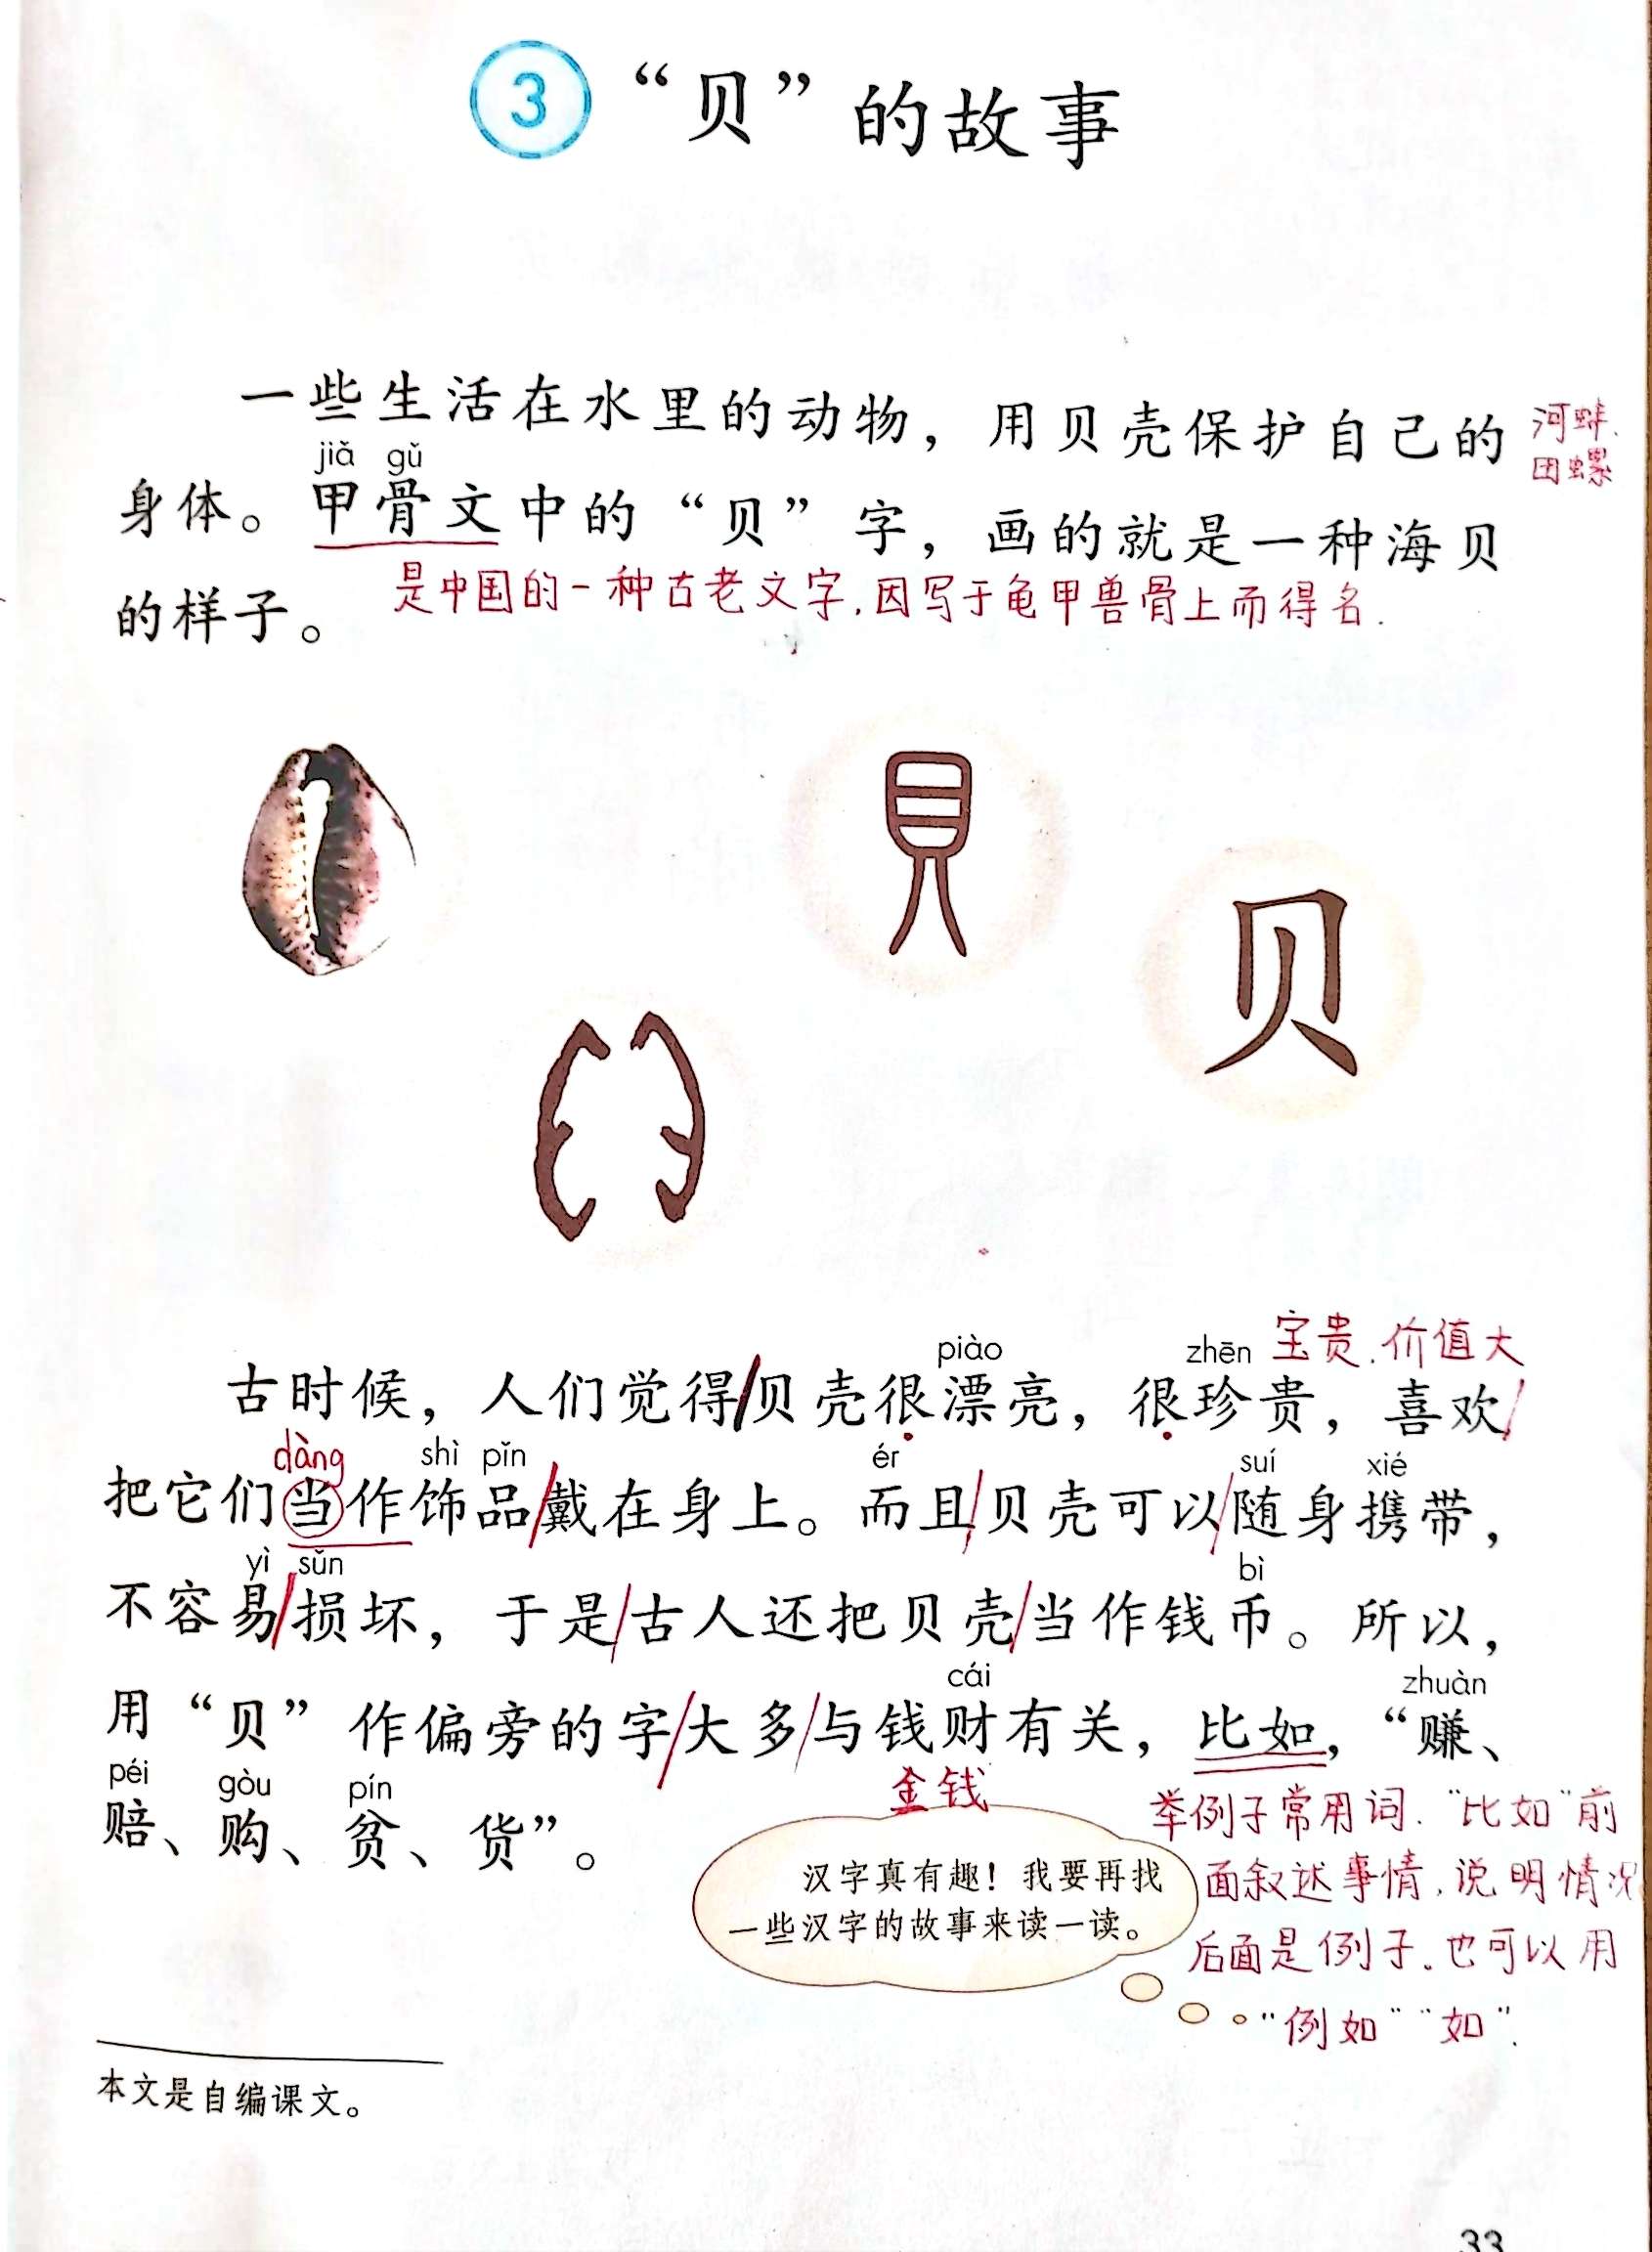 3 “贝”的故事
一些生活在水里的动物，用贝壳保护自己的
河蚌.
田螺
jiǎ gǔ
身体。甲骨文中的“贝”字，画的就是一种海贝
是中国的一种古老文字,因写于龟甲兽骨上而得名.
的样子。
貝
贝
宝贵.价值大
piào zhēn
古时候，人们觉得/贝壳很漂亮，很珍贵，喜欢/
dàng shì pǐn ér suí xié
把它们当作饰品/戴在身上。而且/贝壳可以/随身携带，
yì sǔn bì
不容易/损坏，于是/古人还把贝壳/当作钱币。所以，
cái zhuàn
用“贝”作偏旁的字/大多/与钱财有关，比如，“赚、
金钱
péi gòu pín
赔、购、贫、货”。
举例子常用词.“比如”前
面叙述事情,说明情况
后面是例子。也可以用
“例如”“如”.
汉字真有趣！我要再找
一些汉字的故事来读一读。
本文是自编课文。
33